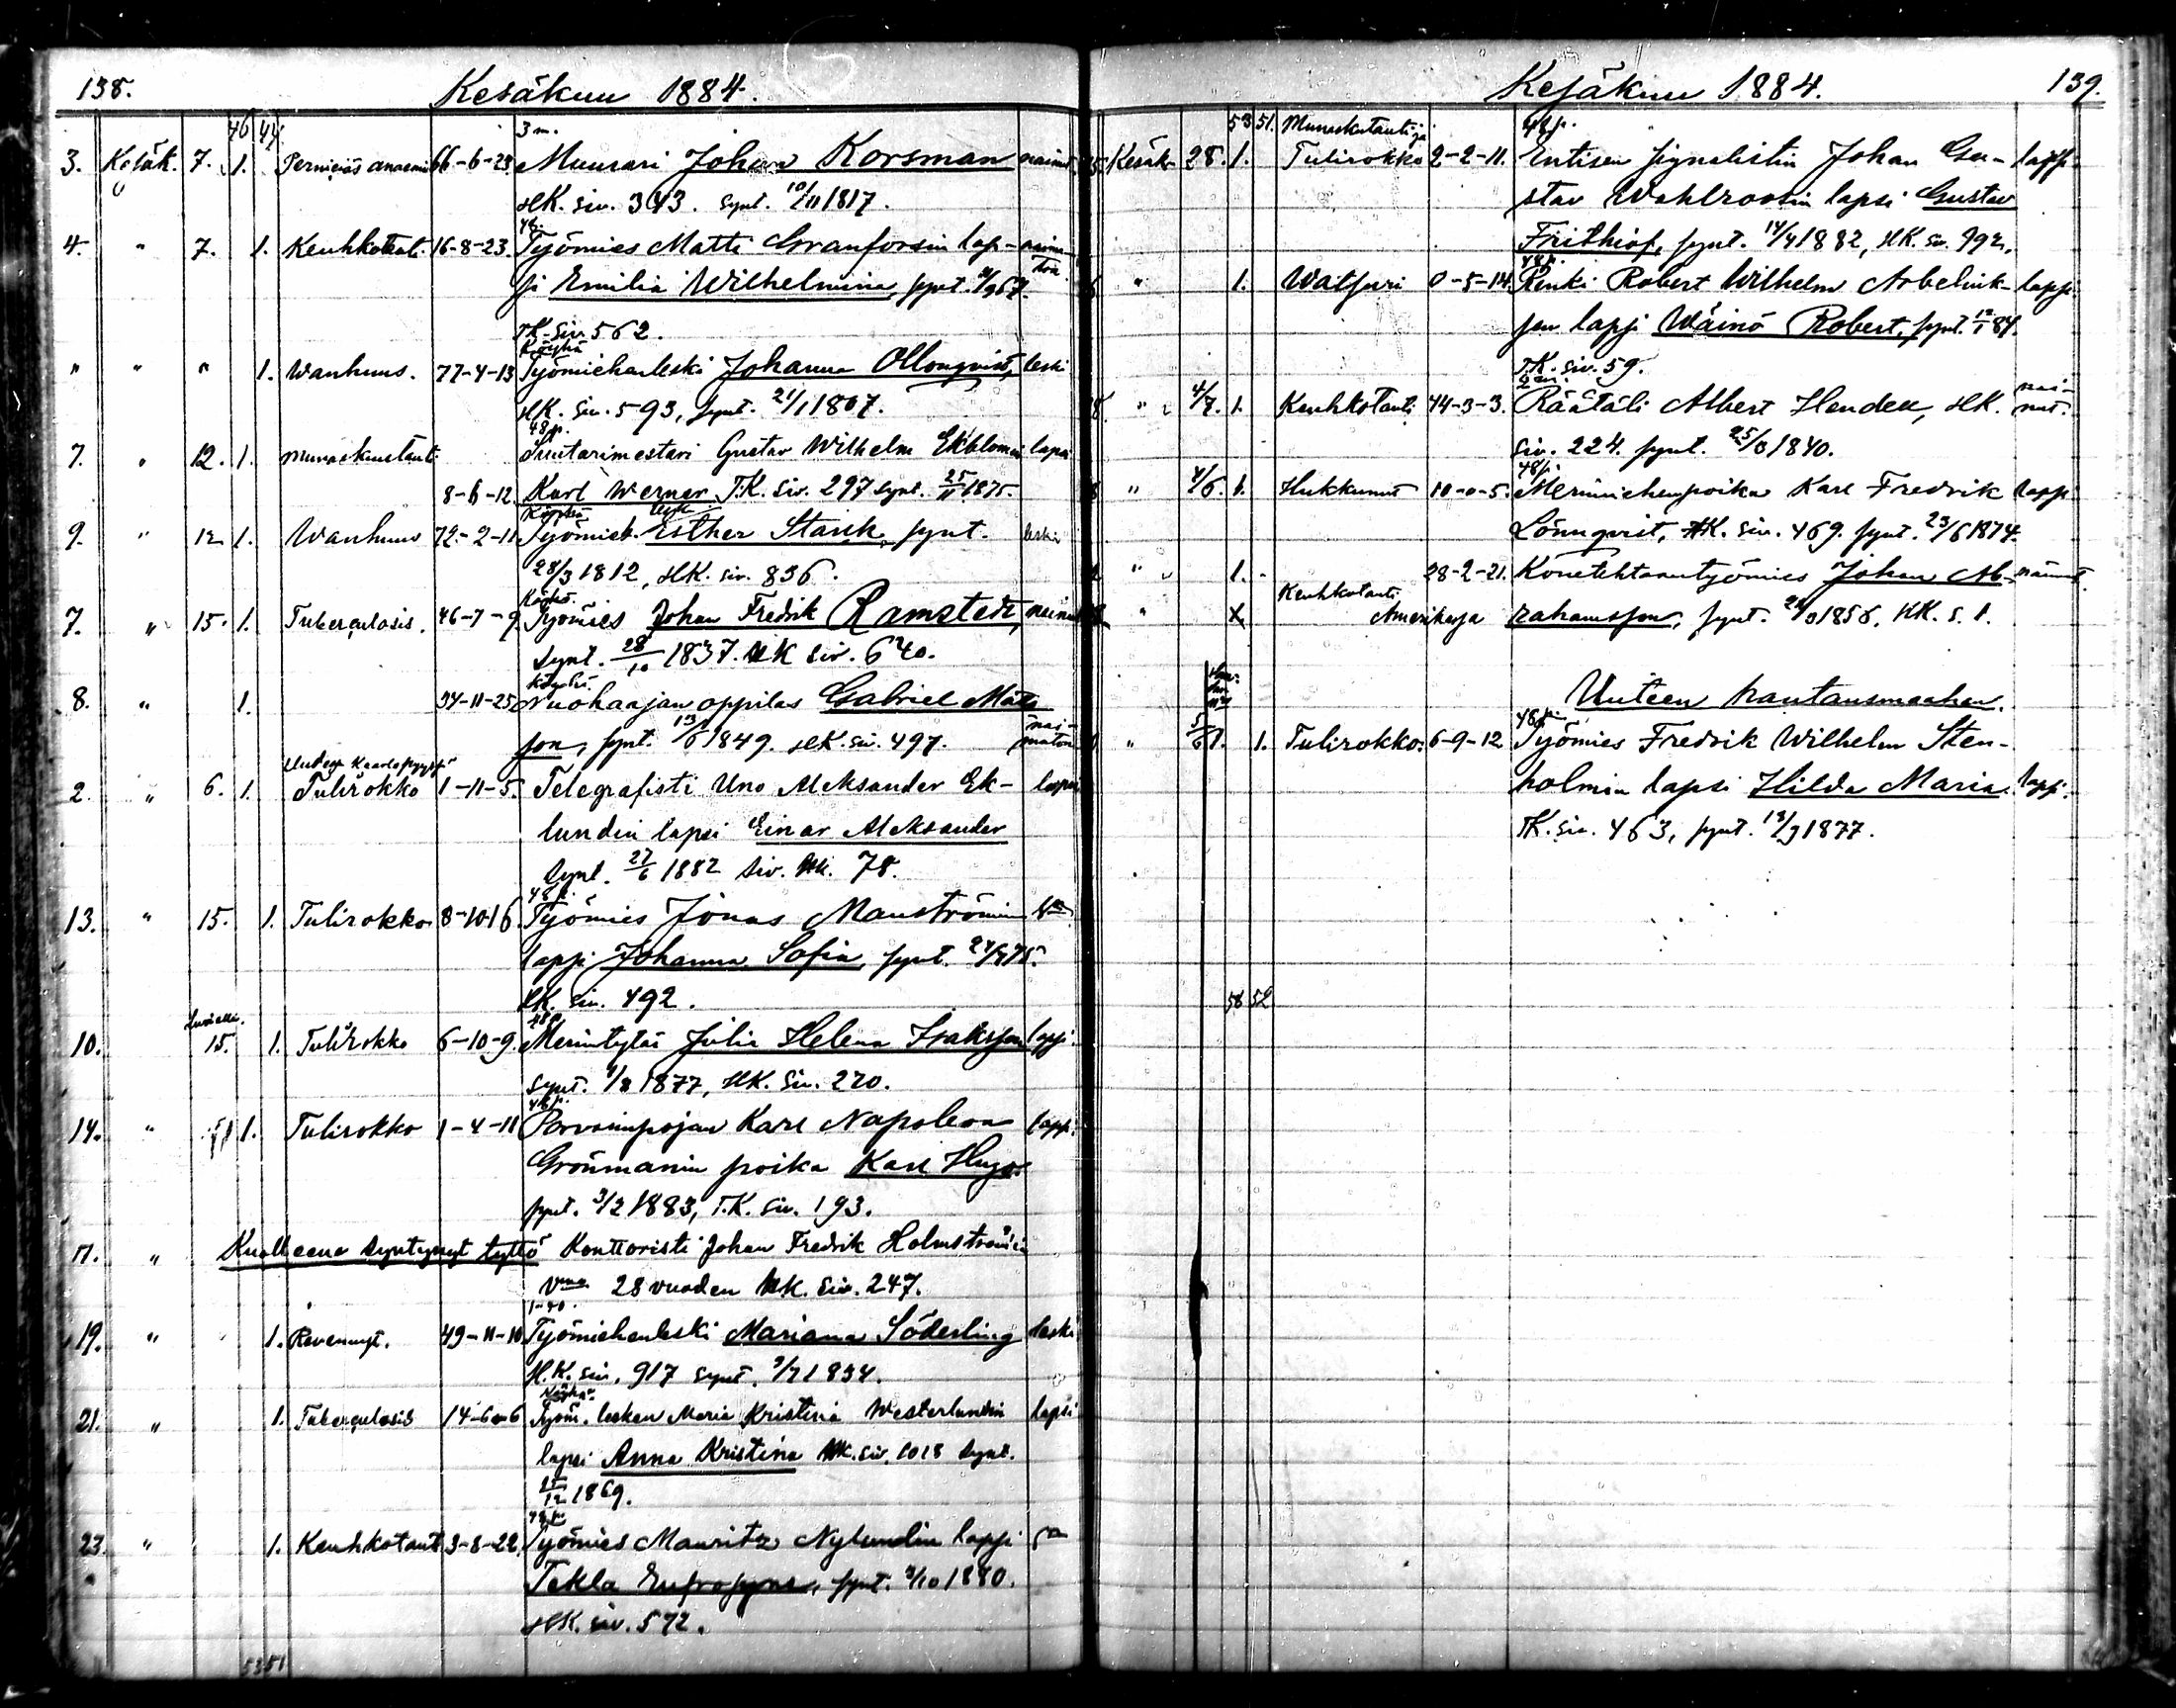 138.
Kesäkuu 1884.
46 47.
3 m.
3. Kesäk. 7. 1. Perniciös anaemi 66-6-23 Muurari Johan Korsman nainut
HK. siv. 343. synt. 10/11 1817.
48.
4. " 7. 1. Keuhkotaut. 16-8-23. Työmies Matti Granforsin lap- naima-
si Emilia Wilhelmina, synt. 67. ton.
TK. siv. 562.
Köyhä
" " " 1. Wanhuus. 77-4-13 Työmiehenleski Johanna Ollonqvist, leski
HK. siv. 593, synt. 21/1 1807.
48 p.
7. " 12. 1. munaskuutaut. Suutarimestari Gustav Wilhelm Ekblomin lapsi
8-6-12 Karl Werner T.K. siv. 297 synt. 25/11 1875.
Köyhä leski
9. " 12 1. Wanhuus 72-2-11 Työmieh. Esther Stark, synt. leski
28/3 1812, HK. siv. 836.
Köyhä.
7. " 15. 1. Tuberculosis. 46-7-9 Työmies Johan Fredrik Ramstedt, nainut
synt. 28/10 1837. HK siv. 640.
Köyhä.
8. " 1. 34-11-25 Nuohaajan oppilas Gabriel Matts
son, synt. 13/6 1849. HK. siv. 497. nai-
maton
Uudessa Kaarlepyyssä
2. " 6. 1. Tulirokko 1-11-5. Telegrafisti Uno Aleksander Ek- lapsi
lundin lapsi Einar Aleksander
synt. 27/6 1882 siv. HK. 78.
48 p.
13. " 15. 1. Tulirokko 8-10-16. Työmies Jonas Manströmin
lapsi Johanna Sofia, synt. 75.
HK. siv. 492.
48 p.
10. 15. 1. Tulirokko 6-10-9. Merimtytär Julia Helena Isaksson lapsi
synt. 1877, HK. siv. 220.
48 p.
14. " 1. Tulirokko 1-4-11 Porvarinpojan Karl Napoleon lapsi
Grönmanin poika Karl Hugo
synt. 3/2 1883, T.K. siv. 193.
17. " Kuolleena syntynyt tyttö Konttoristi Johan Fredrik Holmströmin
vmo 28 vuoden HK. siv. 247.
19. " 1. Revennyt. 49-11-10 Työmiehenleski Mariana Söderling leski
H.K. siv. 917 synt. 9/7 1834.
Köyhä.
21. " 1. Tuberculosis 14-6-6 Työm. lesken Maria Kristina Westerlundin lapsi
lapsi Anna Kristina HK. siv. 1018 synt.
25/12 1869.
48 p.
23. " 1. Keuhkotaut 3-8-22. Työmies Mauritz Nylundin lapsi
Tekla Eufrosyne, synt. 1/10 1880.
HK. siv. 572.
53 51
Kesäkuu 1884.
139.
53 51. Munaskutauti ja 48 p.
Kesäk 28. 1. Tulirokko 2-2-11. Entisen signalistin Johan Gu- lapsi
stav Wahlroosin lapsi Gustav
Frithiof, synt. 14/4 1882, HK. siv. 992.
48 p.
" 1. Watsuri 0-5-14. Renki Robert Wilhelm Arbelink- lapsi
sen lapsi Wäinö Robert, synt. 12/1 84.
TK. siv. 59.
" 4/7. 1. Keuhkotauti 44-3-3. Räätäli Albert Hendell, HK. nai-
nut.
siv. 224. synt. 25/3 1840.
48 p.
" 4/6. 1. Hukkunut 10-0-5. Merimiehenpoika Karl Fredrik lapsi
Lönnqvist, HK. siv. 469. synt. 23/6 1874.
" 1. 28-2-21. Konetehtaantyömies Johan Ab- nainut
Keuhkotauti
" X Amerikassa rahamsson, synt. 1856. HK. s. 1.
Uuteen hautausmaahan.
48 p.
" 5/6 1. 1. Tulirokko. 6-9-12 Työmies Fredrik Wilhelm Sten-
holmin lapsi Hilda Maria. lapsi.
TK. siv. 463, synt. 18/9 1877.
58 52